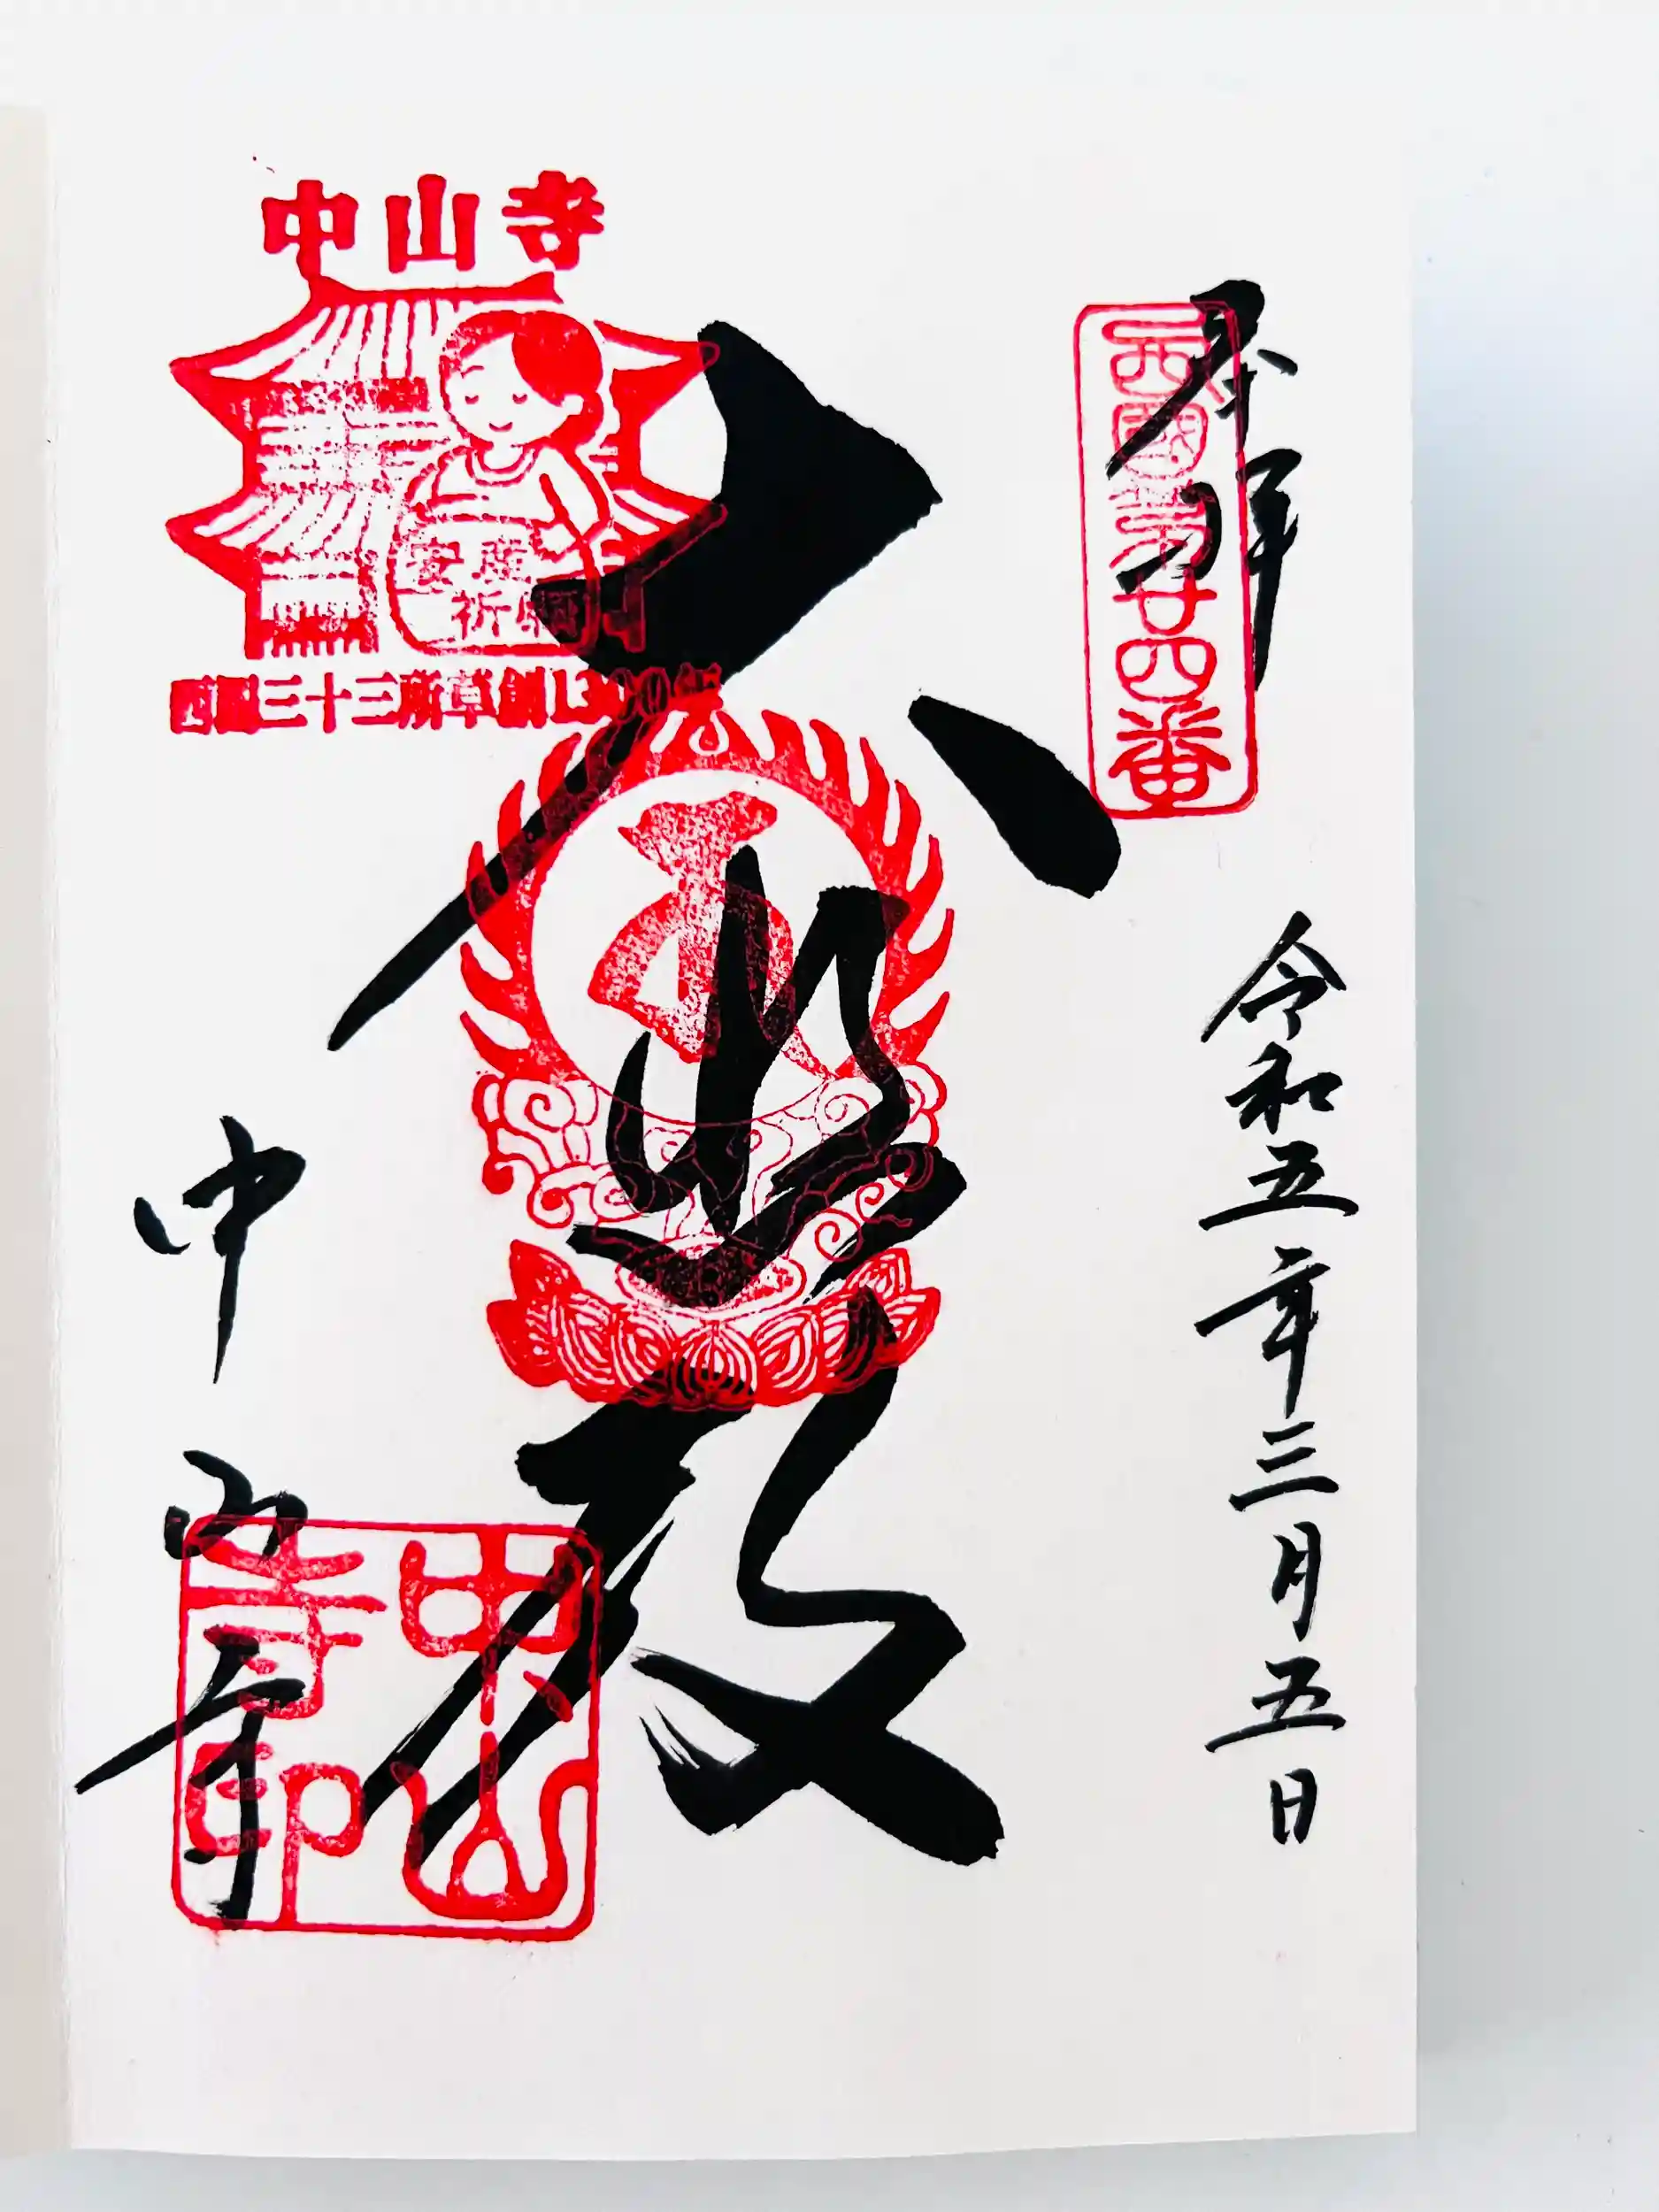 奉拝
西國第廿四番
令和五年三月五日
大悲殿
中山寺
安産
祈願
西国三十三所草創1300年
中山寺
中山寺印